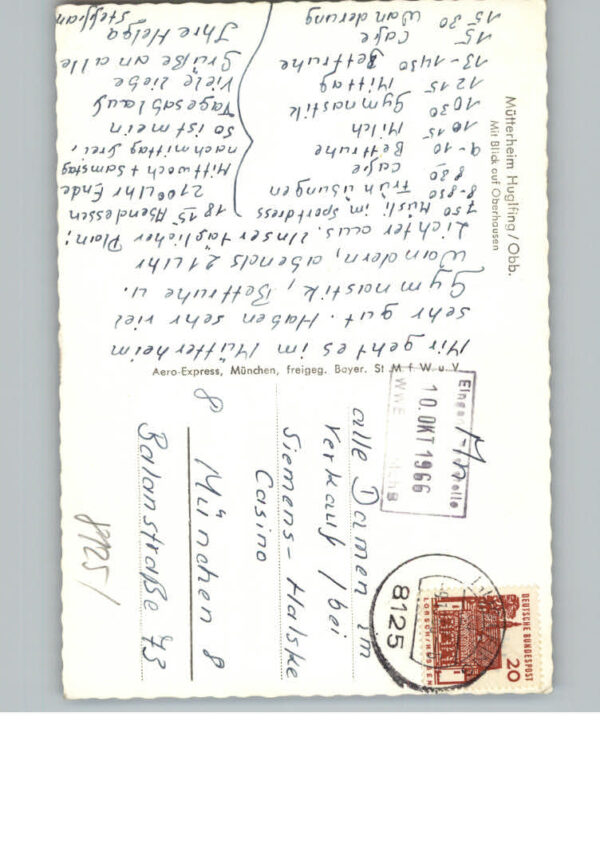 Mütterheim Huglfing/Obb.
Mit Blick auf Oberhausen
Mir geht es im Mütterheim
sehr gut. Haben sehr viel
Gymnastik, Bettruhe u.
Wandern, abends 21 Uhr
Lichter aus. Unser täglicher Plan:
7 50 Müsli im Sportdress
8-8 50 Früh übungen
8 30 Cafe
9-10 Bettruhe
10 15 Milch
10 30 Gymnastik
12 15 Mittag
13-14 30 Bettruhe
15 Cafe
15 30 Wanderung
18 15 Abendessen
21 00 Uhr Ende
Mittwoch + Samstag
nachmittag frei,
so ist mein
Tagesablauf
Viele liebe
Grüße an alle
Ihre Helga
Steffan
Aero-Express, München, freigeg. Bayer. St M f W u V
alle Damen im
Verkauf / bei
Siemens-Halske
Casino
8 München 8
Balanstraße 73
10. OKT 1966
WWE
8125
8125
DEUTSCHE BUNDESPOST
20
LORSCH/HESSEN